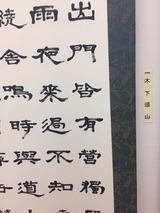 出門皆有營獨
雨夜來過不知
繞舍鳴時與道
木下頌山